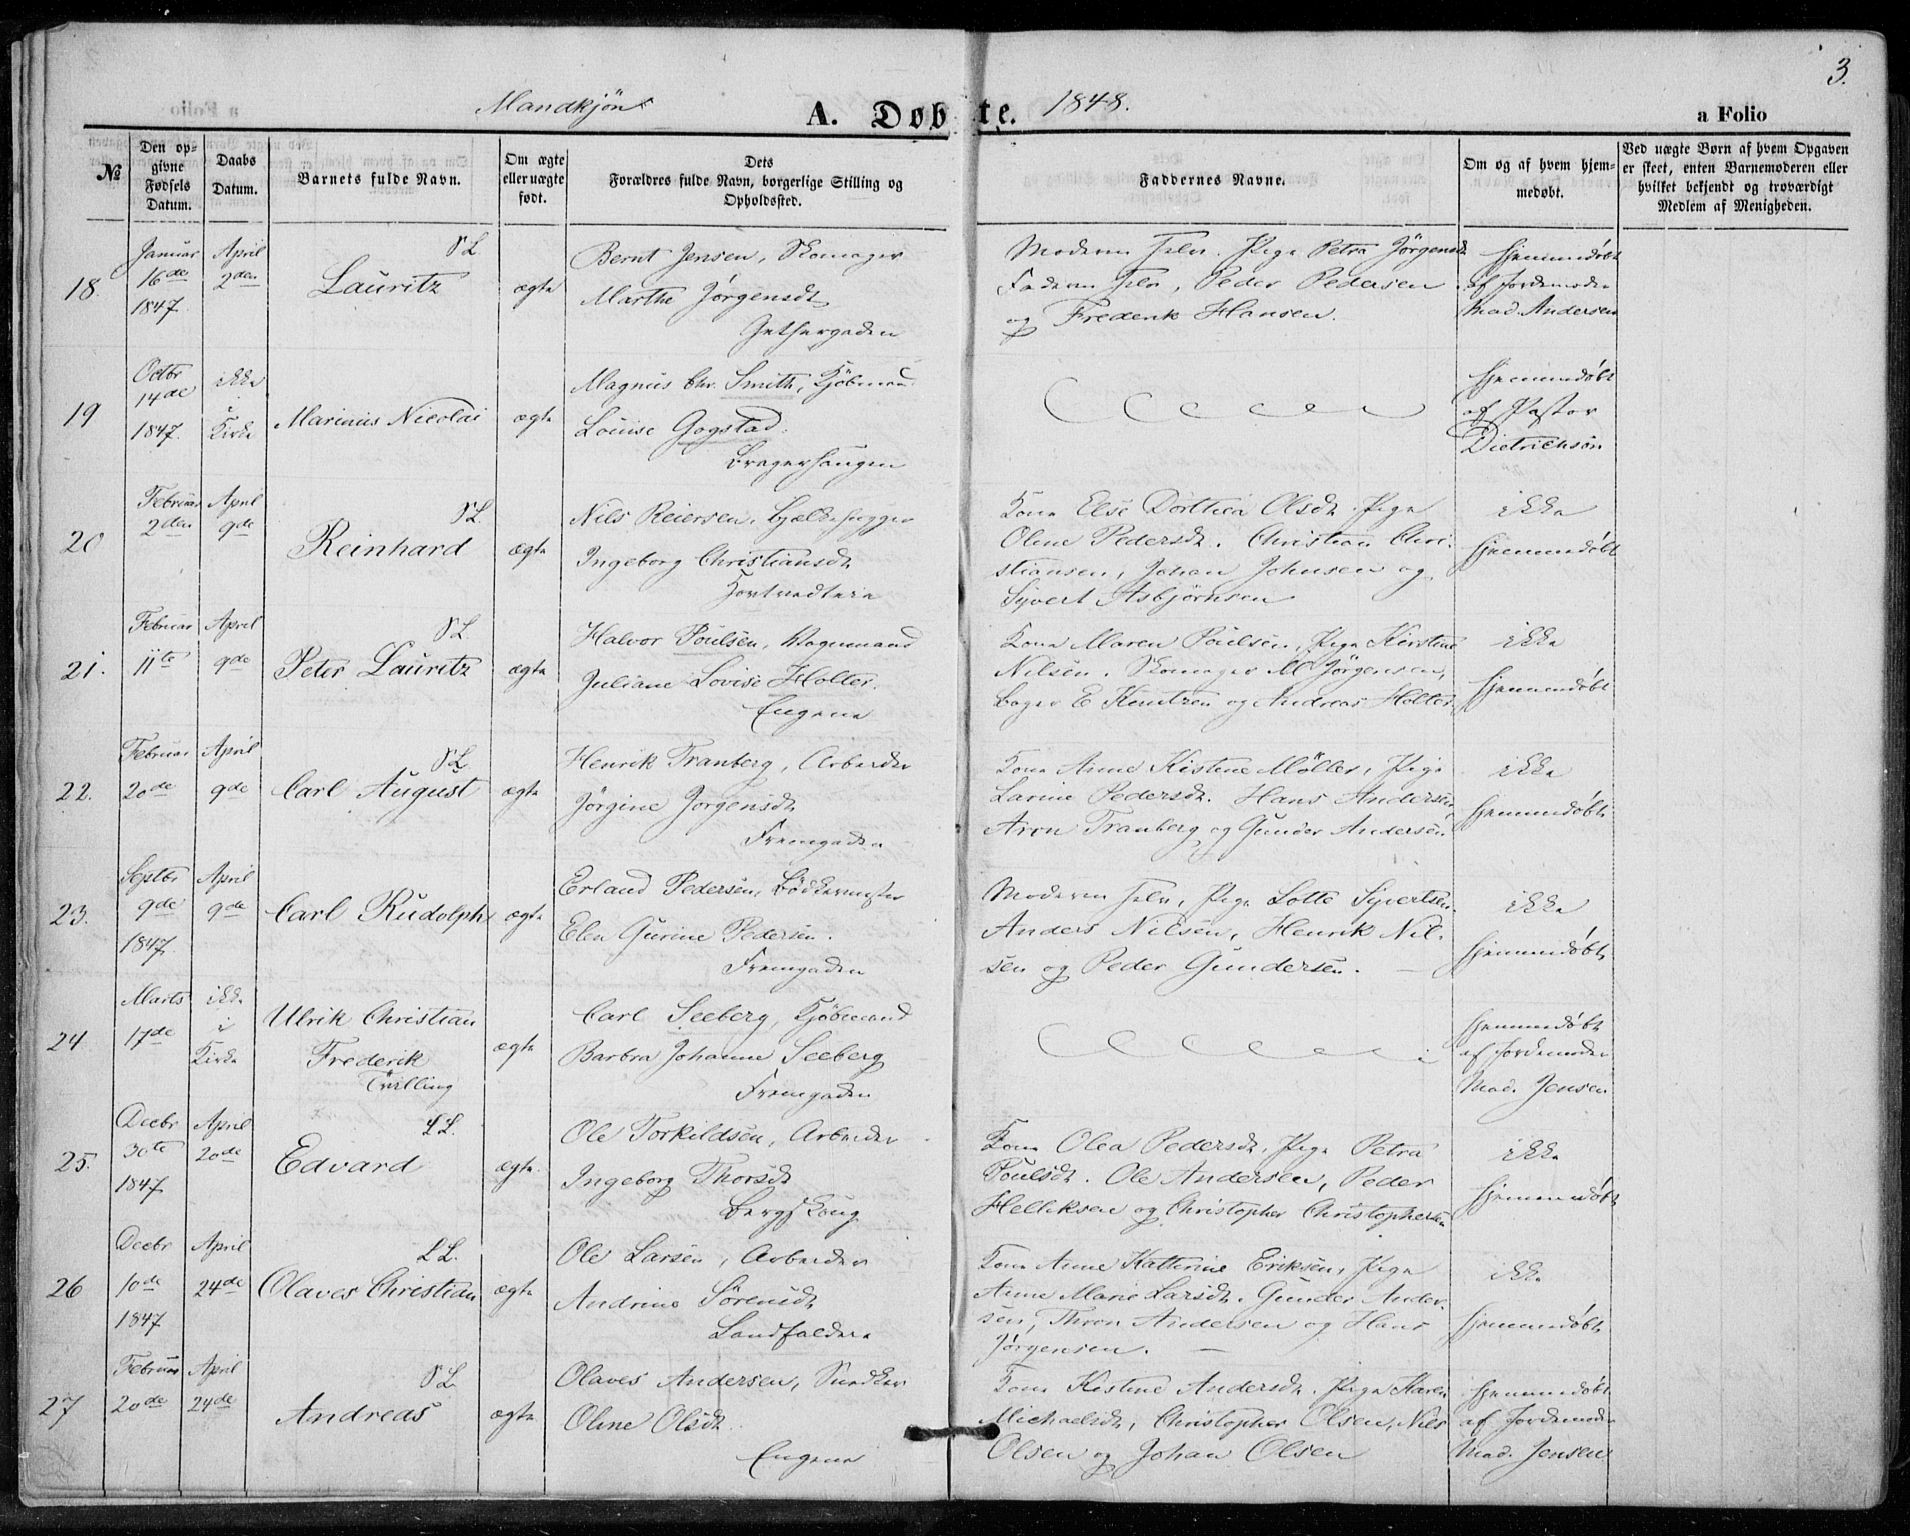 3.
Mandkjøn A. Døbte. 1848. a Folio
№
Den opgivne Fødsels Datum.
Daabs Datum.
Barnets fulde Navn.
Om ægte eller uægte født.
Dets Forældres fulde Navn, borgerlige Stilling og Opholdssted.
Faddernes Navne.
Om og af hvem hjemmedøbt.
Ved uægte Børn af hvem Opgaven er skeet, enten Barnemoderen eller hvilket bekjendt og troværdigt Medlem af Menigheden.
18.
Januar 16de 1847.
April 2den
SL
Lauritz
ægte
Bernt Jensen, Skomager
Marthe Jørgensdt
Moderen selv. Pige Petra Jörgensdt
Faderen selv, Peder Pedersen
og Frederik Hansen.
hjemmedøbt
af Jordemoder
Mad. Andersen
19
Octbr 14de 1847.
ikke i Kirke
Marinus Nicolai
ægte
Magnus Chr. Smith, Kjöbmand
Louise Gogstad.
Bragerhougen
hjemmedöbt
af Pastor
Dietrichson
20
Februar 2den
April 9de
SL.
Reinhard
ægte
Nils Reiersen, Bjelkehugger
Ingeborg Christiansdt
Kone Else Dorthea Olsdt. Pige
Oline Pedersdt. Christian Chri-
stiansen, Johan Johnsen og
Syvert Asbjørnsen
ikke
hjemmedöbt
21.
Februar 11te
April 9de
SL.
Peter Lauritz
ægte
Halvor Poulsen, Vognmand
Juliane Lovise Holter.
Engene
Kone Maren Poulsen, Pige Kirstine
Nilsen. Skomager M Jörgensen,
Bager E Knutzen og Andreas Holter.
ikke
hjemmedöbt
22.
Februar 20de
April 9de
SL.
Carl August
ægte
Henrik Tranberg, Arbeider
Jörgine Jorgensdt
Fremgaden
Kone Anne Kistine Möller, Pige
Larine Pedersdt. Hans Andersen
Aron Tranberg og Gunder Andersen
ikke
hjemmedöbt
23.
Septbr 9de 1847.
April 9de
Carl Rudolph
ægte
Erland Pedersen, Bödkermester
Elen Gurine Pedersen.
Fremgaden
Moderen selv, Pige Lotte Syvertsen.
Anders Nilsen, Henrik Nil-
sen og Peder Gundersen.
ikke
hjemmedöbt
24
Marts 17de
ikke i Kirke
Ulrik Christian
Frederik
Tvilling
ægte
Carl Seeberg, Kjöbmand
Barbra Johanne Seeberg
Fremgaden
hjemmedöbt
af Jordemoder
Mad. Jensen
25.
Decbr 30te 1847
April 20de
LL.
Edvard
ægte.
Ole Torkildsen, Arbeider
Ingeborg Thorsdt
Bergskoug
Kone Olea Pedersdt, Pige Petra
Poulsdt. Ole Andersen, Peder
Helliksen og Christopher Christophersen
ikke
hjemmedöbt
26
Decbr 10de 1847
April 24de
LL.
Olaves Christian
ægte
Ole Larsen, Arbeider
Andrine Sörensdt
Landfaldene
Kone Anne Kathrine Eriksen, Pige
Anne Marie Larsdt. Gunder Ander-
sen, Thron Andersen og Hans
Jørgensen.
ikke
hjemmedöbt
27
Februar 20de
April 24de
SL
Andreas
ægte
Olaves Andersen, Snedker
Oline Olsdt.
Engene
Kone Kistine Andersdt. Pige Karen
Michaelsdt, Christopher Olsen, Nils
Olsen og Johan Olsen
hjemmedöbt
af Jordemoder
Mad. Jensen